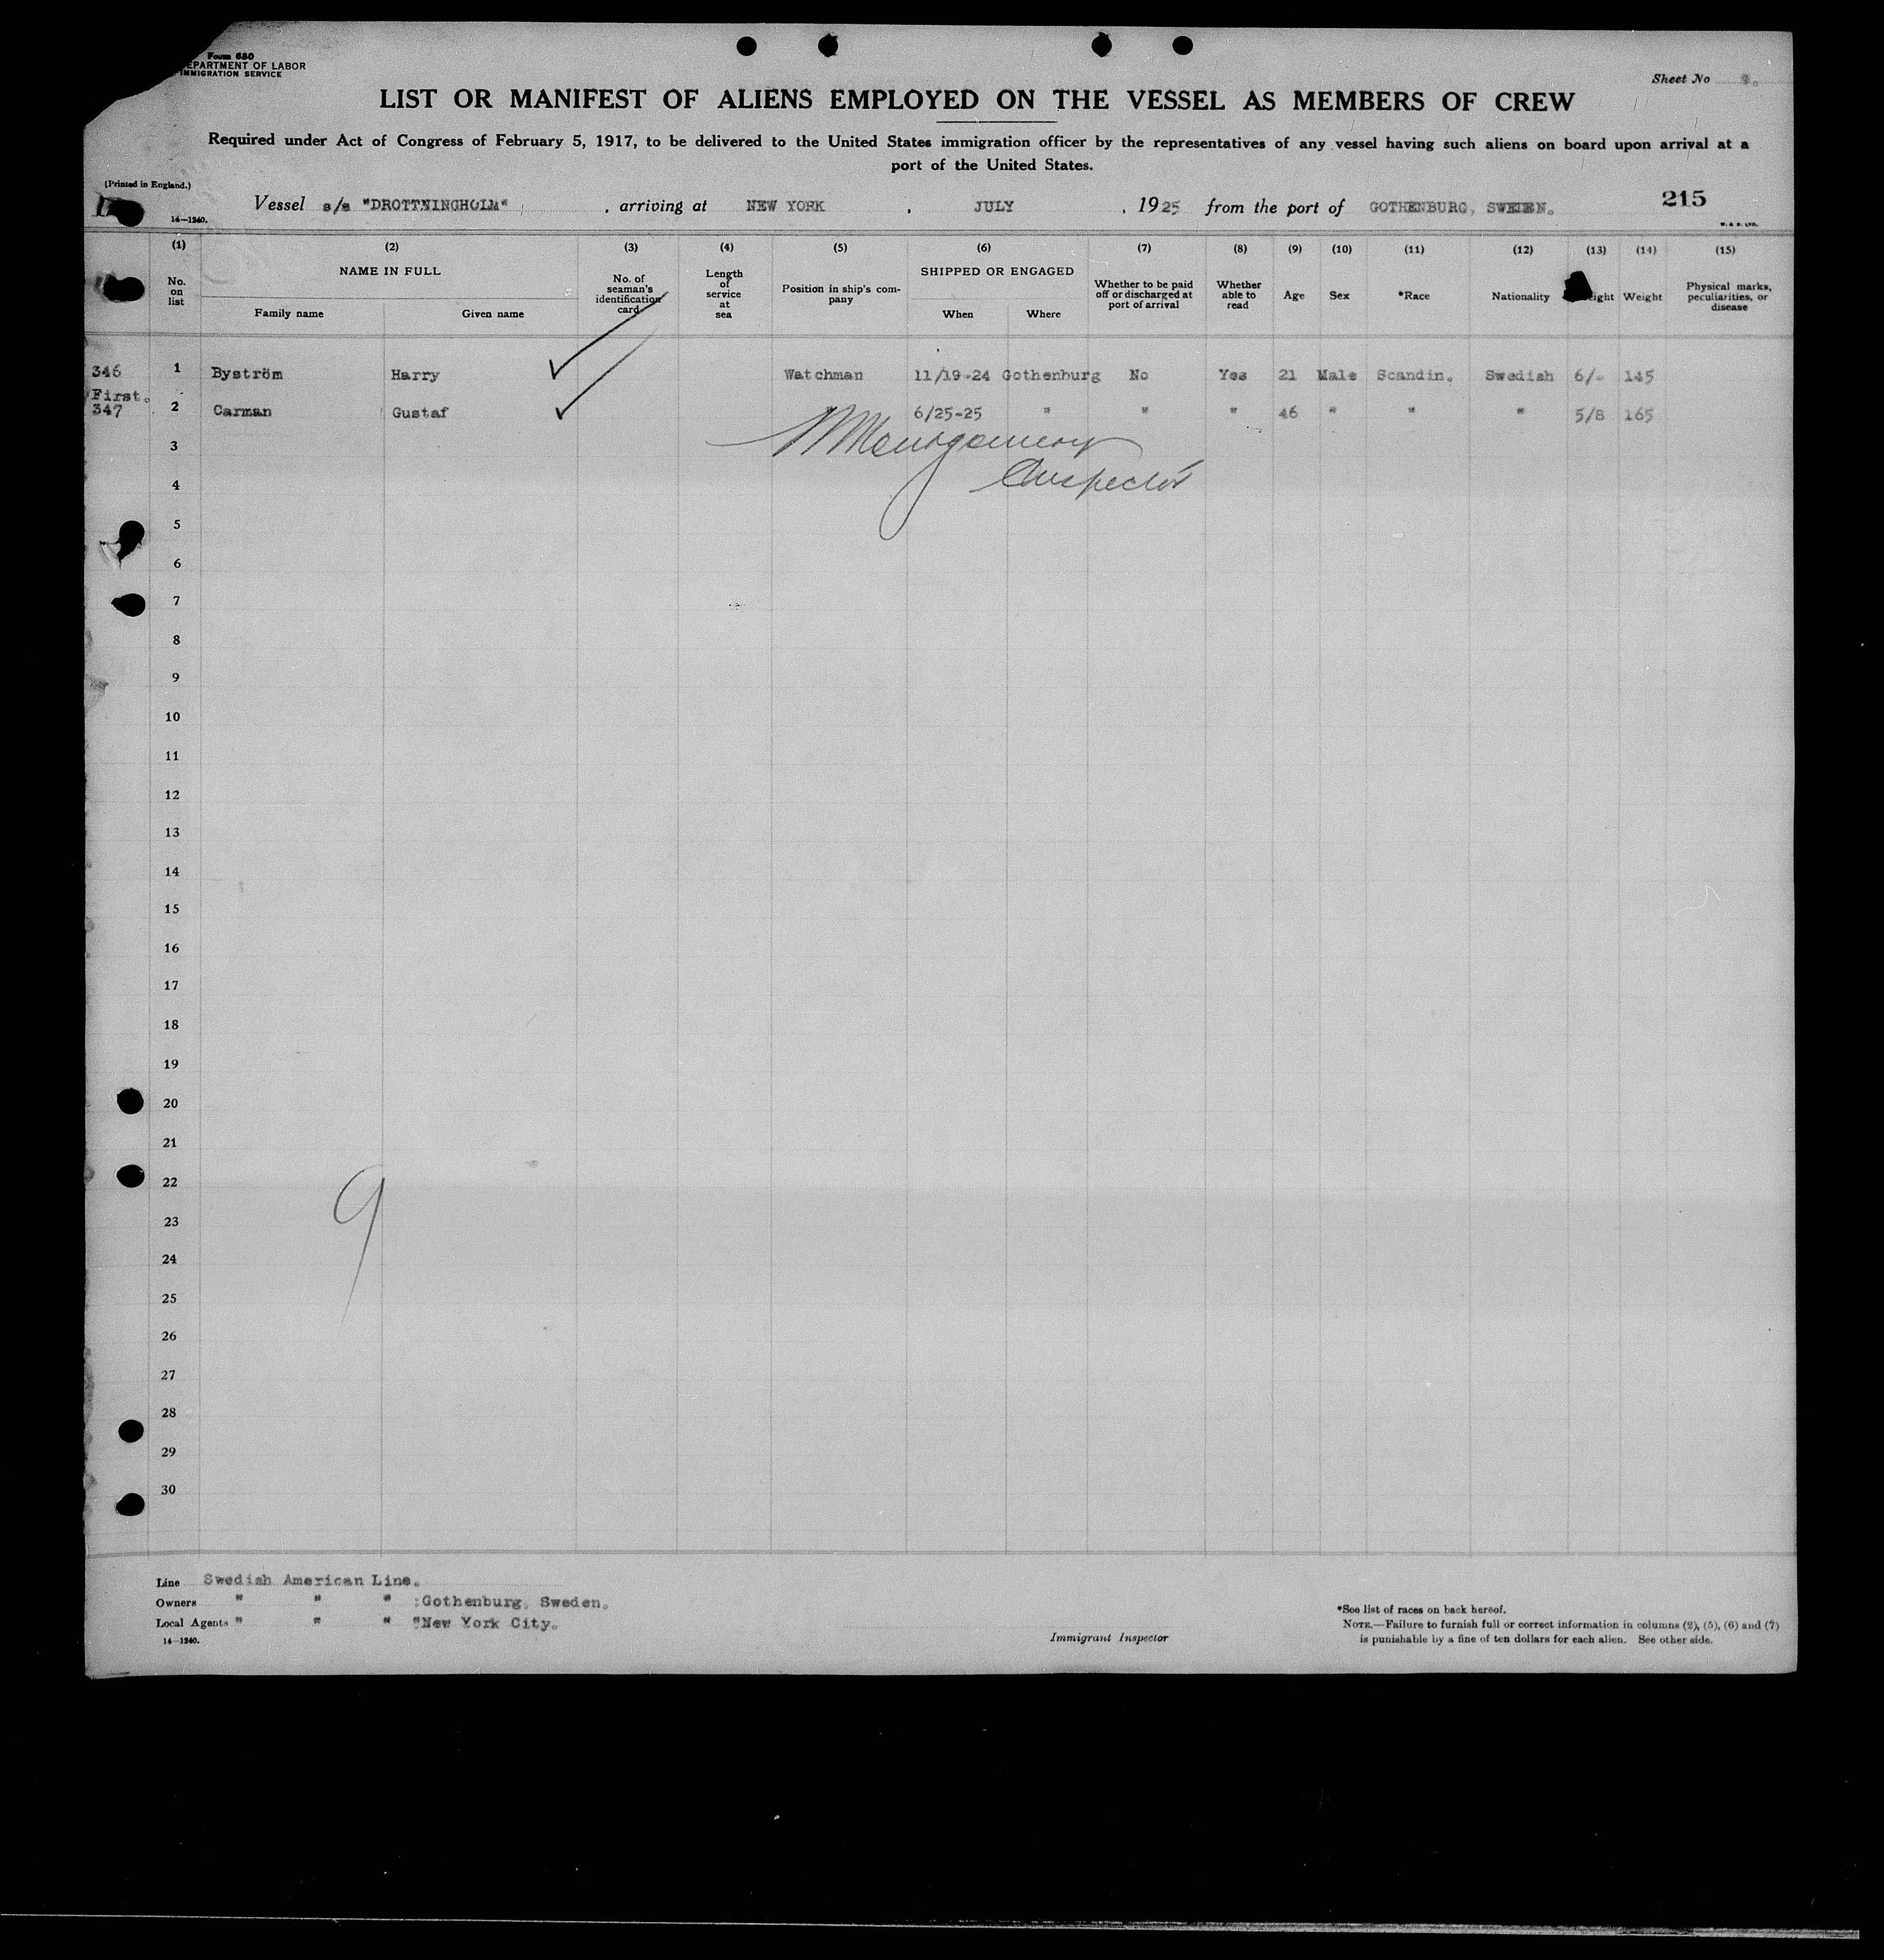 Form 680
DEPARTMENT OF LABOR
IMMIGRATION SERVICE
Sheet No
LIST OR MANIFEST OF ALIENS EMPLOYED ON THE VESSEL AS MEMBERS OF CREW
Required under Act of Congress of February 5, 1917, to be delivered to the United States immigration officer by the representatives of any vessel having such aliens on board upon arrival at a
port of the United States.
(Printed in England.)
14—1240.
Vessel s/s "DROTTNINGHOLM", arriving at NEW YORK, JULY, 1925 from the port of GOTHENBURG, SWEDEN.
215
(1) (2) (3) (4) (5) (6) (7) (8) (9) (10) (11) (12) (13) (14) (15)
No. on list
NAME IN FULL
Family name
Given name
No. of seaman's identification card
Length of service at sea
Position in ship's company
SHIPPED OR ENGAGED
When
Where
Whether to be paid off or discharged at port of arrival
Whether able to read
Age
Sex
*Race
Nationality
Height
Weight
Physical marks, peculiarities, or disease
346 1 Byström Harry Watchman 11/19-24 Gothenburg No Yes 21 Male Scandin. Swedish 6/- 145
First.
347 2 Carman Gustaf " 6/25-25 " " " 46 " " " 5/8 165
3
Montgomery
4
Inspector
5
6
7
8
9
10
11
12
13
14
15
16
17
18
19
20
21
22
9
23
24
25
26
27
28
29
30
Line Swedish American Line.
Owners " " " :Gothenburg, Sweden.
Local Agents " " " "New York City.
14—1240.
Immigrant Inspector
*See list of races on back hereof.
NOTE.—Failure to furnish full or correct information in columns (2), (5), (6) and (7)
is punishable by a fine of ten dollars for each alien. See other side.